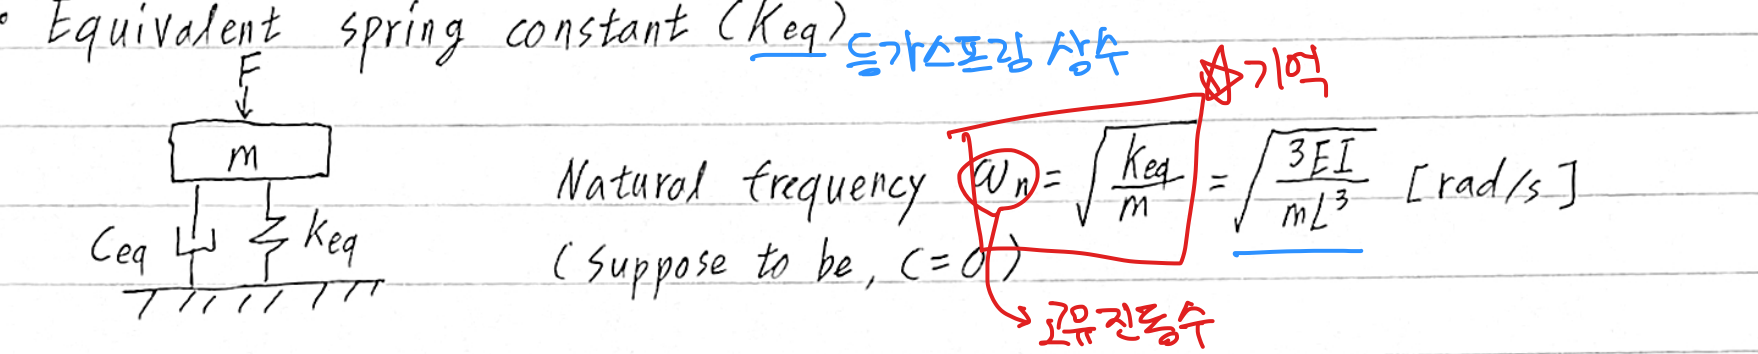 • Equivalent spring constant (Keq) 등가스프링 상수
F
☆기억
m
Natural frequency ωn = √(keq/m) = √(3EI/mL³) [rad/s]
Ceq keq
(suppose to be, C=0)
고유진동수